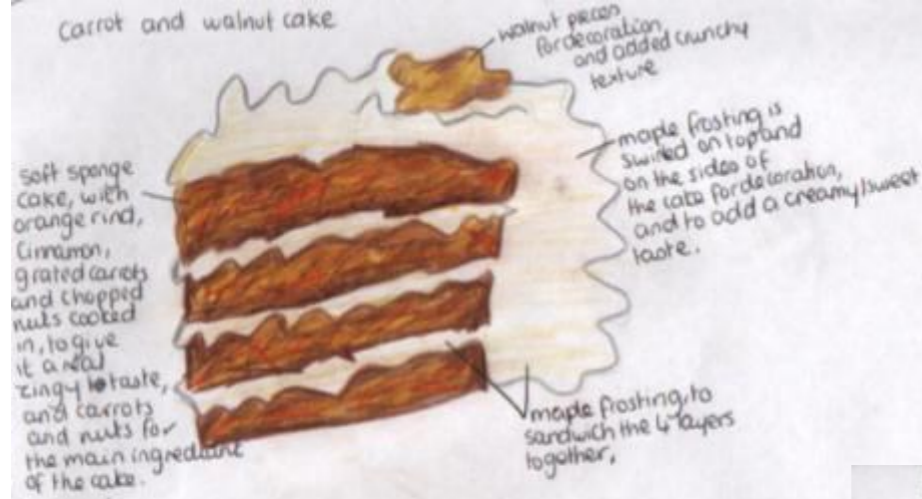 Carrot and walnut cake
walnut pieces
for decoration
and added crunchy
texture
maple frosting is
swirled on top and
on the sides of
the cake for decoration,
and to add a creamy/sweet
taste.
soft sponge
cake, with
orange rind,
Cinnamon,
grated carrots
and chopped
nuts cooked
in, to give
it a real
zingy taste,
and carrots
and nuts for
the main ingredient
of the cake.
maple frosting, to
sandwich the 4 layers
together.